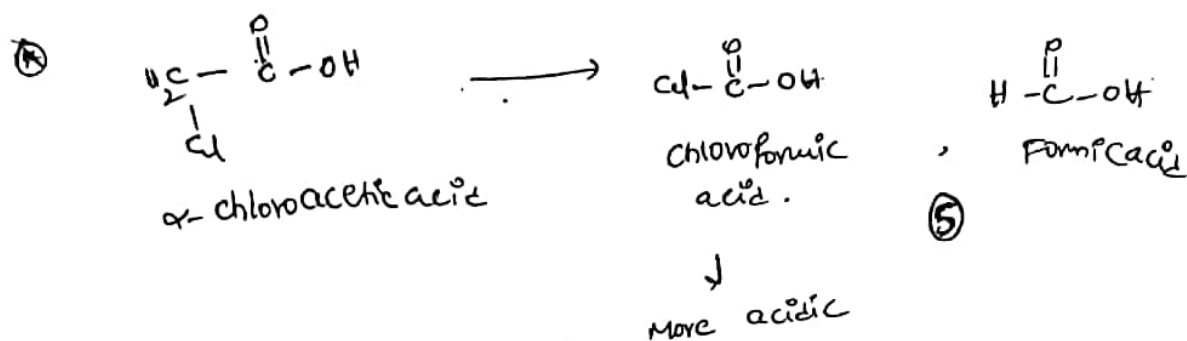 Ⓐ H₂C – C – OH → Cl – C – OH H – C – OH
O O O
Cl
α- chloroacetic acid
Chloroformic acid . , Formic acid
⑤
↓
More acidic